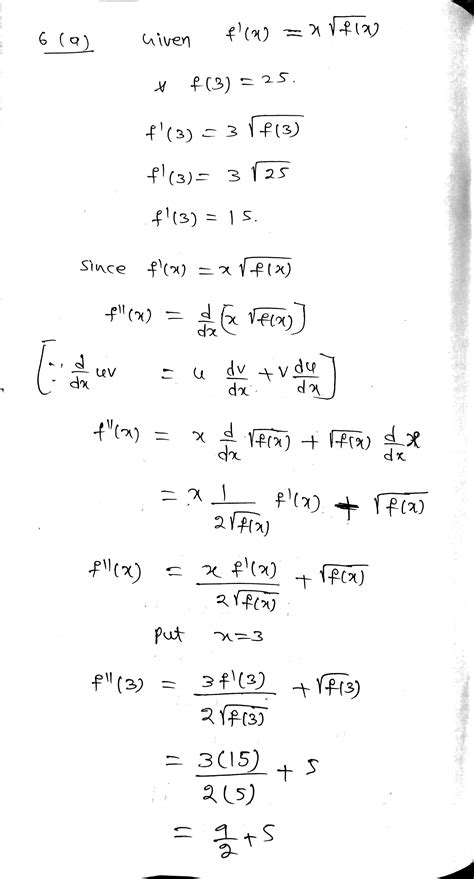 6 (a) Given f'(x) = x √f(x)
& f(3) = 25.
f'(3) = 3 √f(3)
f'(3) = 3 √25
f'(3) = 15.
Since f'(x) = x √f(x)
f''(x) = d/dx [x √f(x)]
[∵ d/dx uv = u dv/dx + v du/dx]
f''(x) = x d/dx √f(x) + √f(x) d/dx x
= x 1/2√f(x) f'(x) + √f(x)
f''(x) = x f'(x)/2√f(x) + √f(x)
put x=3
f''(3) = 3f'(3)/2√f(3) + √f(3)
= 3(15)/2(5) + 5
= 9/2 + 5